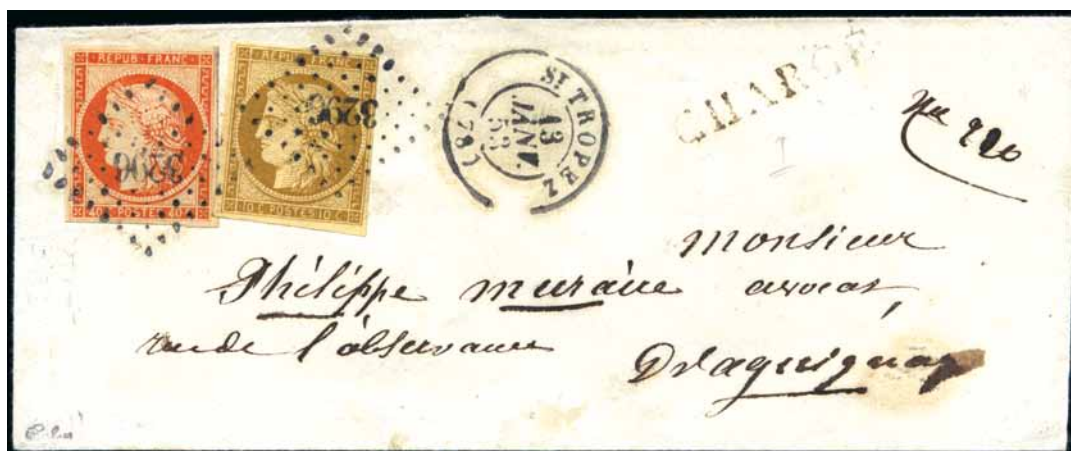 REPUB·FRANC
40·C·POSTES·40·C
REPUB·FRANC
10·C·POSTES·10·C
3296
3296
ST TROPEZ
13
JANV
53
(78)
CHARGÉ
Monsieur
Philippe Muraire avocat,
rue de l'observance
Draguignan